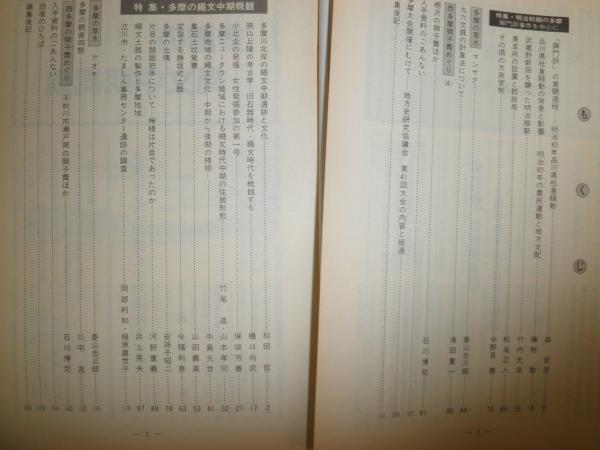 もくじ
特集・明治初期の多摩
御門訴事件を中心に
「御門訴」の展開過程 明治初年品川県社倉騒動 森 安彦 2
品川県社倉騒動の背景と影響 明治初年の農民運動と地方支配 藤野 敦 18
武蔵野新田を襲った明治維新 竹内 光浩
東京府の設置と群政局 松尾 正人
その頃の太政官制 中野目 徹
多摩の草木 マンサク 菱山忠三郎 84
九六文銭の計算法について 滝田 重一 86
西多摩獅子舞めぐり ④
根沢の獅子舞ほか 石川 博司 91
入手資料のごあんない
多摩大会開催にむけて 地方史研究協議会 第41回大会の内容と経過
編集後記
特集・多摩の縄文中期概観
多摩川北岸の縄文中期遺跡と文化 和田 哲 2
狭山丘陵の考古学 旧石器時代・縄文時代を概観する 橋口 尚武 17
小比企の発掘 女性発掘参加の第一号 保坂 芳春 27
多摩ニュータウン地域における縄文時代中期の住居形態 竹尾 進・山本 孝司 32
多摩地域の縄文文化 中期から後期の様相 中島 光世 41
集石土坑覚書 山田 義高 53
変容する勝坂式土器 今福 利恵 63
多摩の土偶 安孫子昭二 74
片目の顔面把手について 神様は片目であったのか 河野 重義 88
縄文土器の製作と多摩地域 井上 晃夫 97
立川市・たましん事務センター遺跡の調査 岡部 利和・梶原喜世子 110
多摩の草木 アオキ 菱山忠三郎
多摩の観音四態 三宅 進
西多摩の獅子舞めぐり ⑧秋川市瀬戸岡の獅子舞ほか 石川 博司
入手資料のごあんない
読者のひろば
編集後記
— 1 —
— 1 —